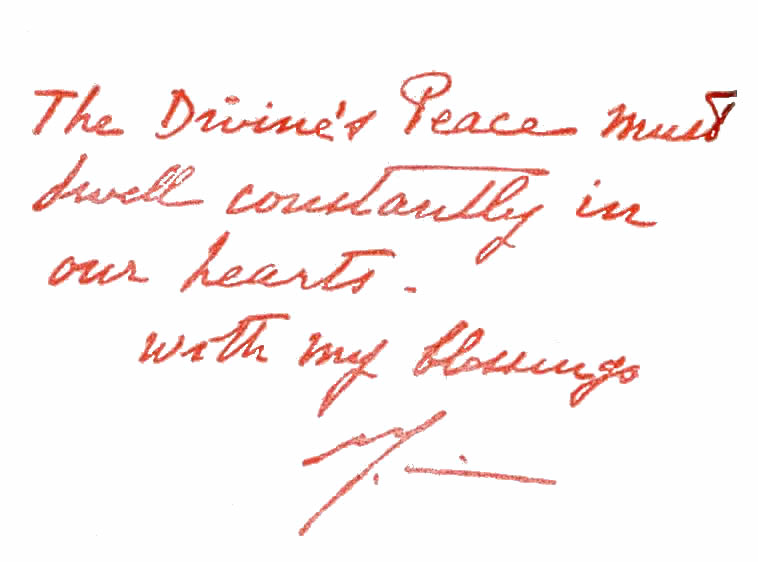 The Divine's Peace must
dwell constantly in
our hearts.
with my blessings